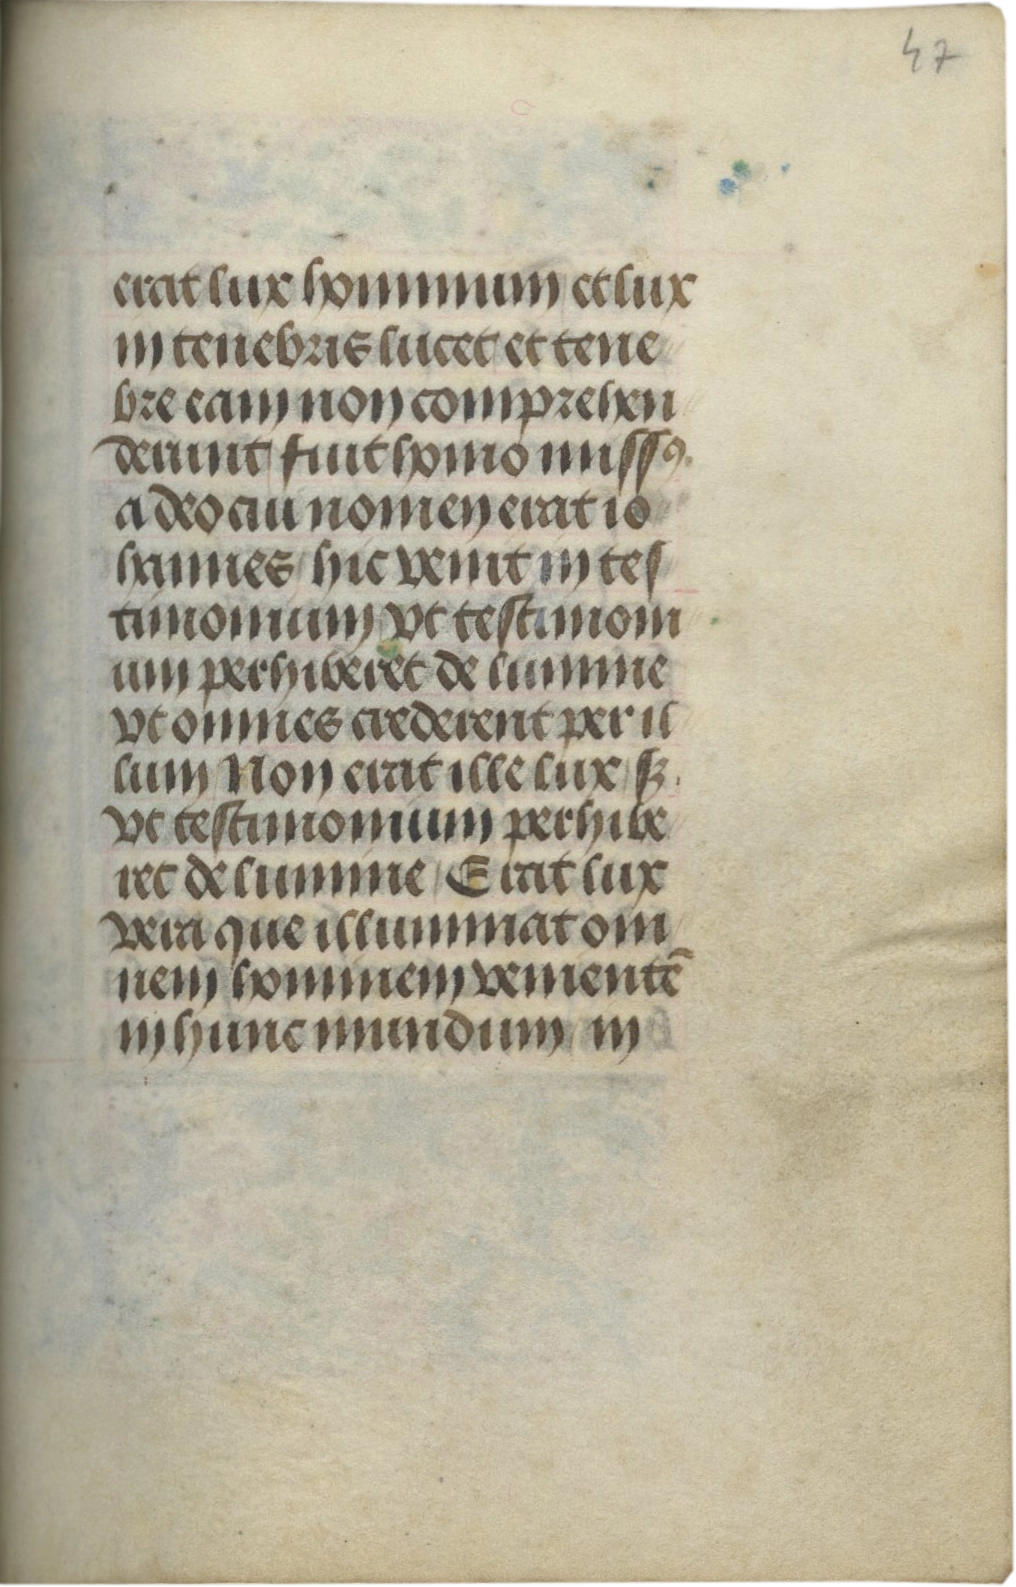 47
erat lux hominum et lux
in tenebris lucet et tene
bre eam non comprehen
derunt fuit homo missꝰ.
a deo cui nomen erat io
hannes hic venit in tes
timonium vt testimoni
um perhiberet de lumine
vt omnes crederent per il
lum Non erat ille lux sꝫ.
vt testimonium perhibe
ret de lumine Erat lux
vera que illuminat om
nem hominem venientē
in hunc mundum in